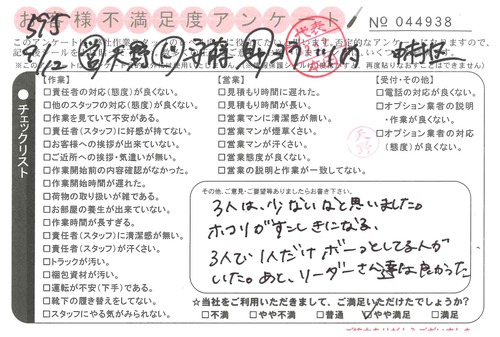 お客様不満足度アンケート
No 044938
【作業】
□責任者の対応(態度)が良くない。
□他のスタッフの対応(態度)が良くない。
□作業を見ていて不安がある。
□責任者(スタッフ)に好感が持てない。
□お客様への挨拶が出来ていない。
□ご近所への挨拶・気遣いが無い。
□作業開始前の内容確認がなかった。
□作業開始時間が遅れた。
□荷物の取り扱いが雑である。
□お部屋の養生が出来ていない。
□作業時間が長すぎる。
□責任者(スタッフ)に清潔感が無い。
□責任者(スタッフ)が汗くさい。
□トラックが汚い。
□梱包資材が汚い。
□運転が不安(下手)である。
□靴下の履き替えをしてない。
□スタッフにやる気がみられない。
チェックリスト
【営業】
□見積もり時間に遅れた。
□見積もり時間が長い。
□営業マンに清潔感が無い。
□営業マンが煙草くさい。
□営業マンが汗くさい。
□営業態度が良くない。
□営業の説明と作業が一致してない。
【受付・その他】
□電話の対応が良くない。
□オプション業者の説明
・作業が良くない。
□オプション業者の対応
(態度)が良くない。
天野
その他、ご意見・ご要望等ありましたらお書き下さい。
3人は、少ないなと思いました。
ホコリがすこし きになる。
3人で1人だけ ボーっとしてる人が
いた。あと、リーダーさん達は良かった
☆当社をご利用いただきまして、ご満足いただけたでしょうか?
□不満 □やや不満 □普通 ☑やや満足 □満足